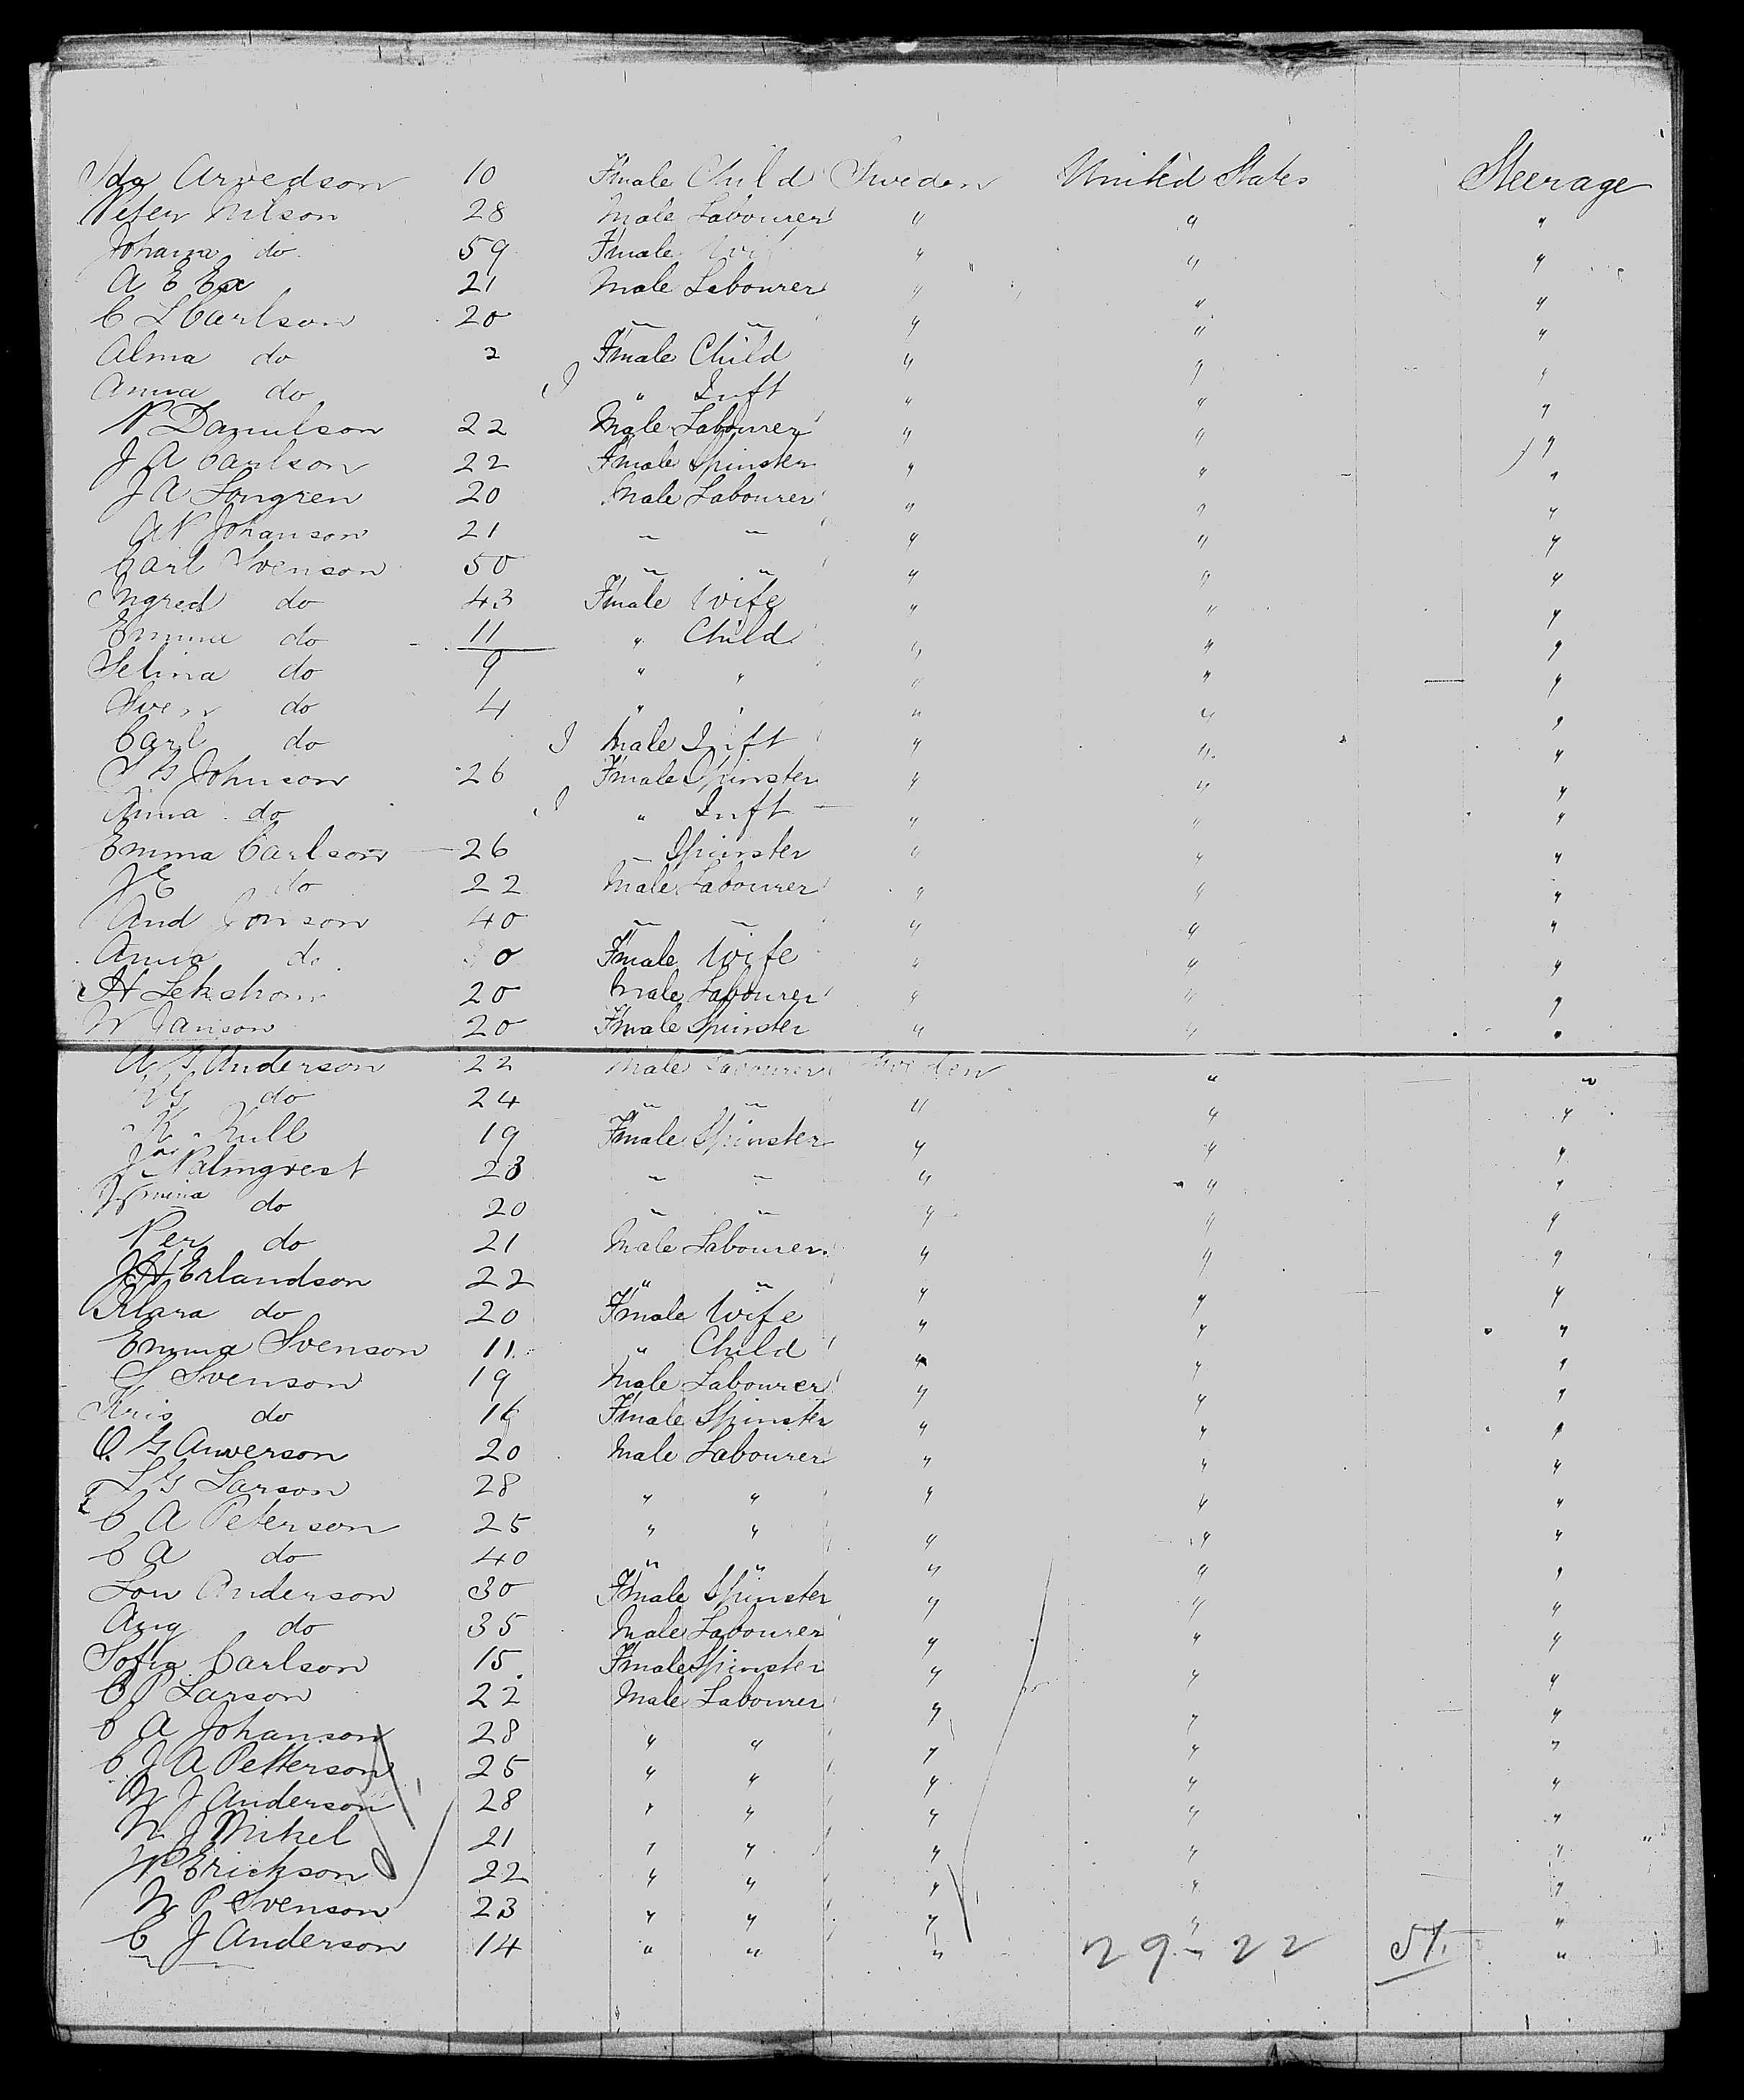 Ida Arvedson 10 Fmale Child Sweden United States Steerage
Peter Nilson 28 Male Labourer " " "
Johana do 59 Fmale Wif " " "
A E Ex 21 Male Labourer " " "
C L Carlson 20 " " " " "
Alma do 2 Fmale Child " " "
Anna do I " Inft " " "
P Danulson 22 Male Labourer " " "
J A Carlson 22 Fmale Spinster " " "
J A Longren 20 Male Labourer " " "
A P Johanson 21 " " " " "
Carl Svenson 50 " " " " "
Ingred do 43 Fmale Wife " " "
Emma do 11 " Child " " "
Selina do 9 " " " " "
Sven do 4 " " " " "
Carl do I Male Inft " " "
S G Johnson 26 Fmale Spinster " " "
Anna do I " Inft " " "
Emma Carlson 26 " Spinster " " "
J E do 22 Male Labourer " " "
And Jonson 40 " " " " "
Anna do 0 Fmale Wife " " "
H Lekstrom 20 Male Labourer " " "
W Janson 20 Fmale Spinster " " "
A G Anderson 22 Male Labourer Sweden " "
do 24 " " " " "
K Kull 19 Fmale Spinster " " "
Palmgrest 23 " " " " "
do 20 " " " " "
Per do 21 Male Labourer " " "
J H Erlandson 22 " " " " "
Klara do 20 Fmale Wife " " "
Emma Svenson 11 " Child " " "
S Svenson 19 Male Labourer " " "
Kris do 16 Fmale Spinster " " "
O G Anverson 20 Male Labourer " " "
L G Larson 28 " " " " "
C A Peterson 25 " " " " "
C A do 40 " " " " "
Lou Anderson 30 Fmale Spinster " " "
Aug do 35 Male Labourer " " "
Sofia Carlson 15 Fmale Spinster " " "
C P Larson 22 Male Labourer " " "
C A Johanson 28 " " " " "
C J A Petterson 25 " " " " "
N J Anderson 28 " " " " "
N J Mikel 21 " " " " "
P Erickson 22 " " " " "
N P Svenson 23 " " " " "
C J Anderson 14 " " " 29-22 51 "